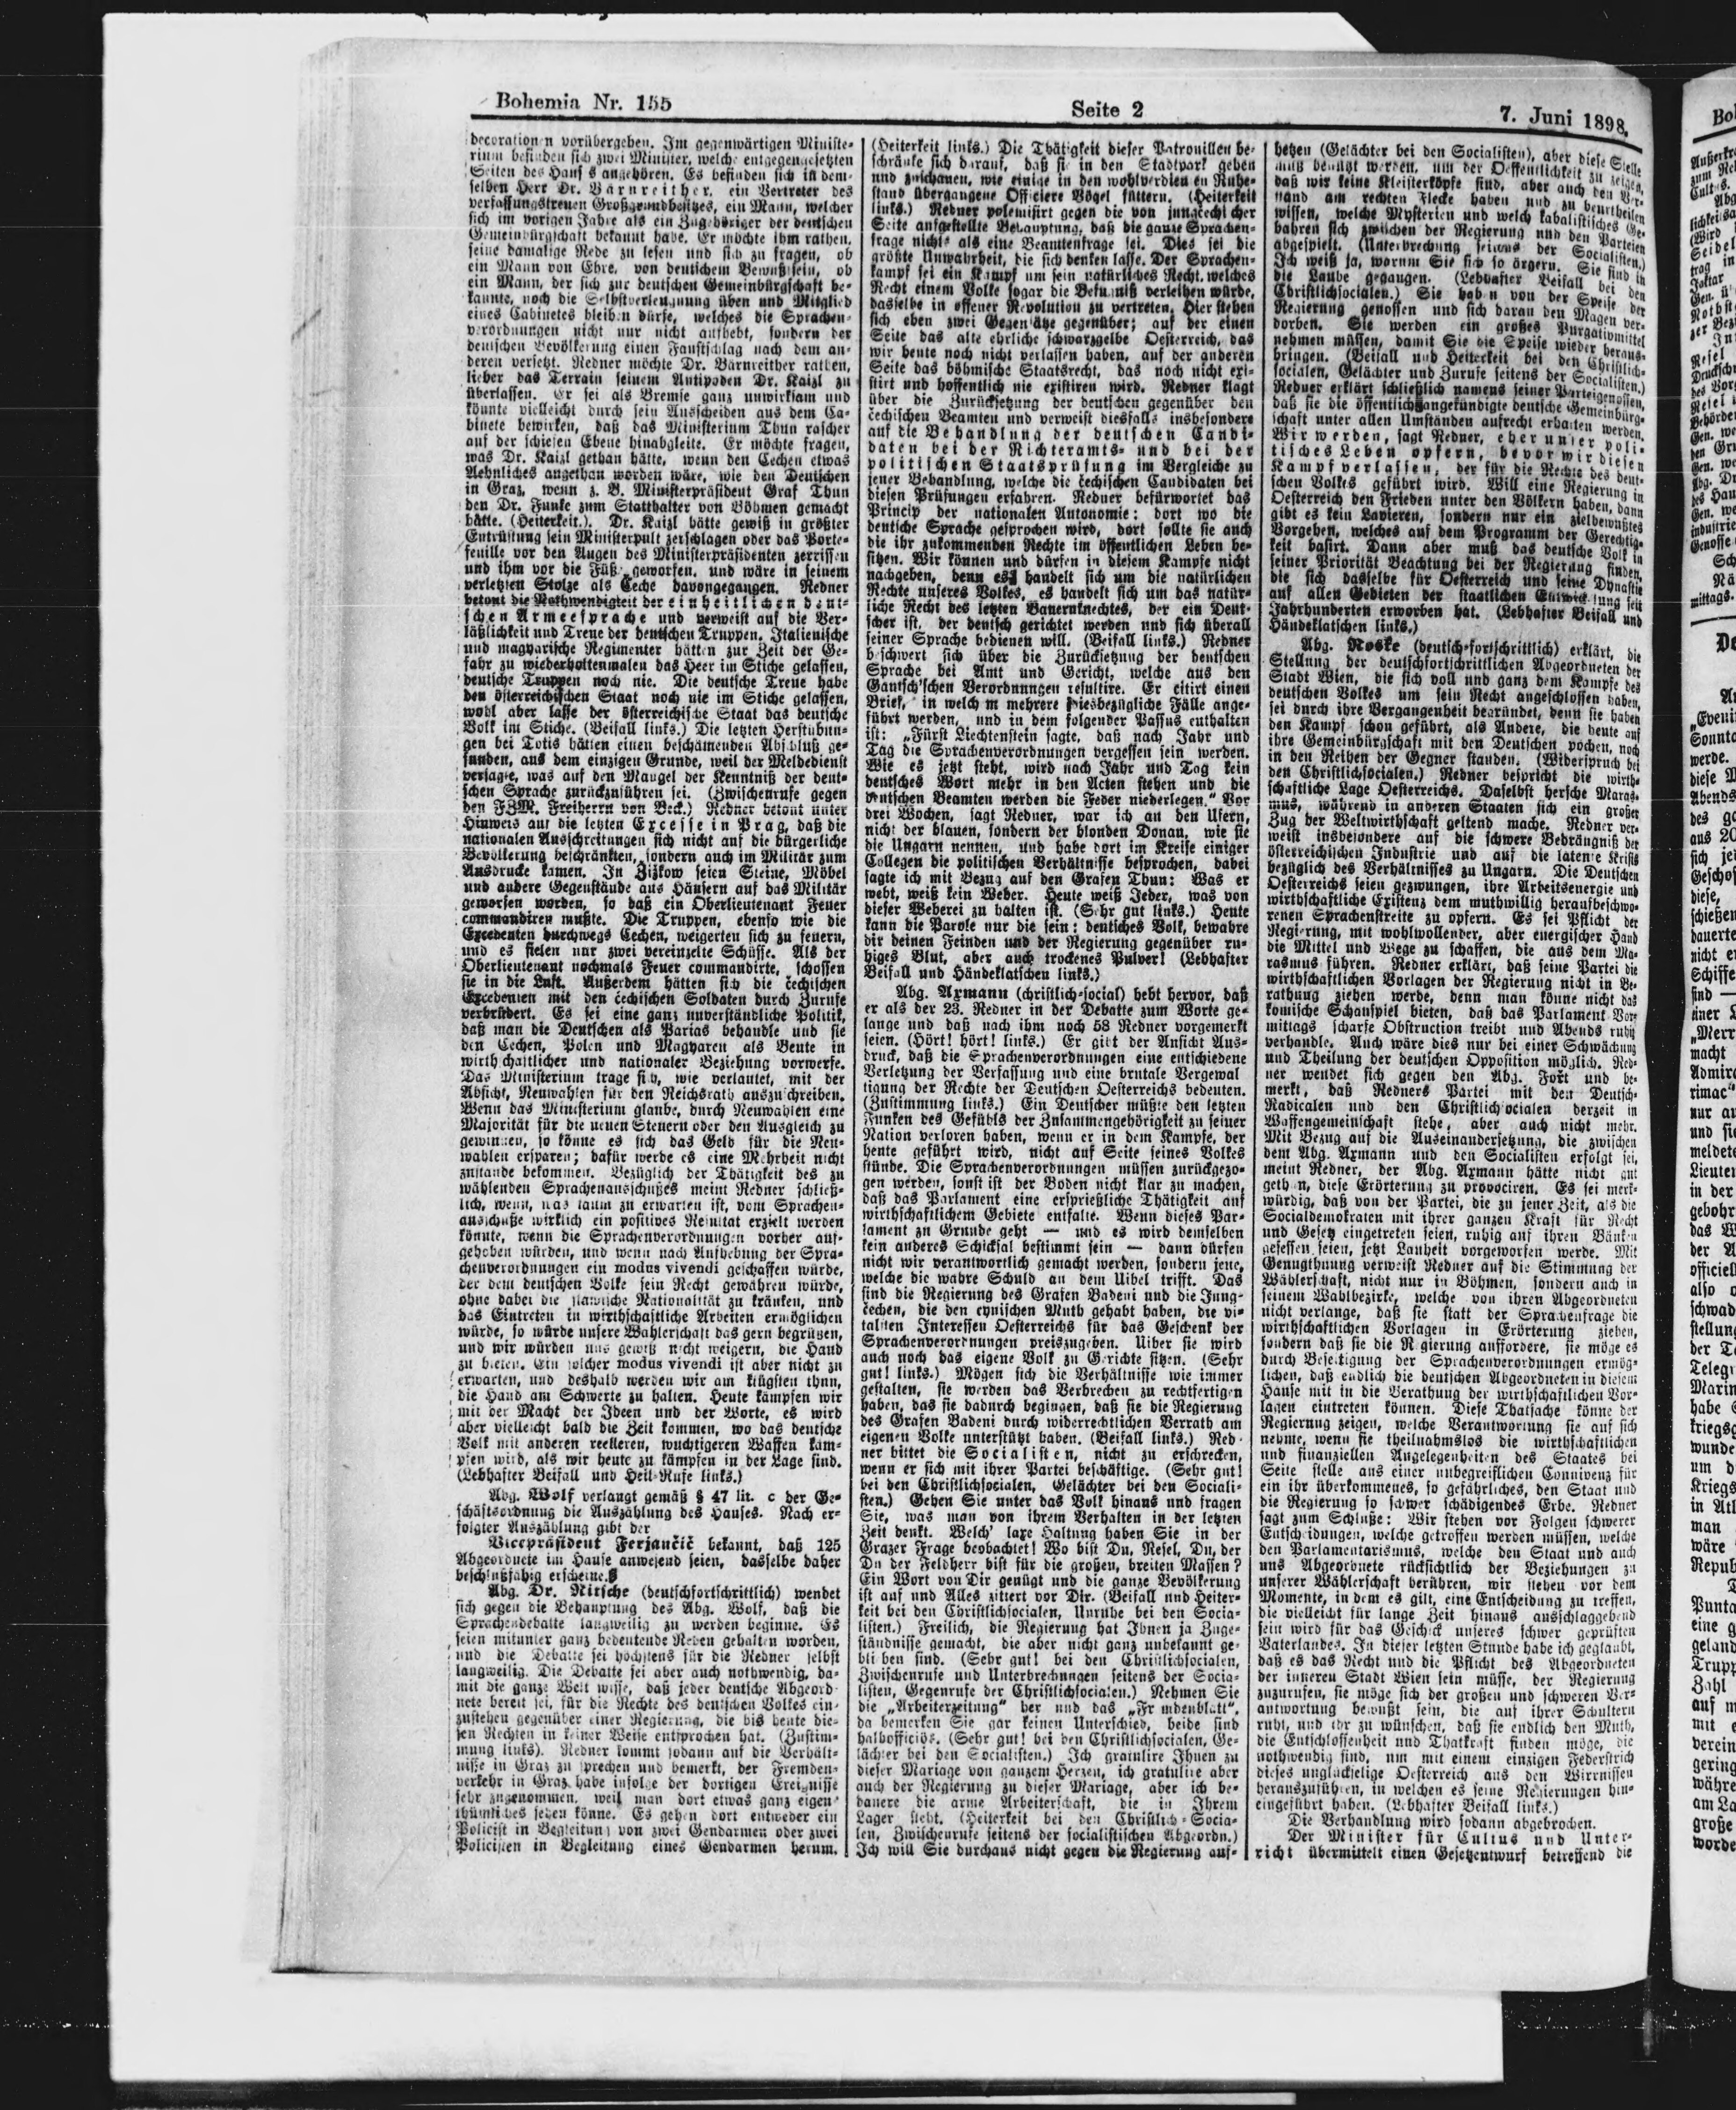 Bohemia Nr. 155
Seite 2
7. Juni 1898.
decorationen vorübergeben. Im gegenwärtigen Ministe-
rium befinden sich zwei Minister, welche entgegengesetzten
Seiten des Hauses angehören. Es befinden sich in dem-
selben Herr Dr. Bärnreither, ein Vertreter des
verfassungstreuen Großgrundbesitzes, ein Mann, welcher
sich im vorigen Jahre als ein Zugehöriger der deutschen
Gemeinbürgschaft bekannt habe. Er möchte ihm rathen,
seine damalige Rede zu lesen und sich zu fragen, ob
ein Mann von Ehre, von deutschem Bewußtsein, ob
ein Mann, der sich zur deutschen Gemeinbürgschaft be-
kannte, noch die Selbstverleugnung üben und Mitglied
eines Cabinetes bleiben dürfe, welches die Sprachen-
verordnungen nicht nur nicht aufhebt, sondern der
deutschen Bevölkerung einen Faustschlag nach dem an-
deren versetzt. Redner möchte Dr. Bärnreither rathen,
lieber das Terrain seinem Antipoden Dr. Kaizl zu
überlassen. Er sei als Bremse ganz unwirksam und
könnte vielleicht durch sein Ausscheiden aus dem Ca-
binete bewirken, daß das Ministerium Thun rascher
auf der schiefen Ebene hinabgleite. Er möchte fragen,
was Dr. Kaizl gethan hätte, wenn den Cechen etwas
Aehnliches angethan worden wäre, wie den Deutschen
in Graz, wenn z. B. Ministerpräsident Graf Thun
den Dr. Funke zum Statthalter von Böhmen gemacht
hätte. (Heiterkeit.). Dr. Kaizl hätte gewiß in größter
Entrüstung sein Ministerpult zerschlagen oder das Porte-
feuille vor den Augen des Ministerpräsidenten zerrissen
und ihm vor die Füße geworfen, und wäre in seinem
verletzten Stolze als Ceche davongegangen. Redner
betont die Nothwendigkeit der einheitlichen deut-
schen Armeesprache und verweist auf die Ver-
läßlichkeit und Treue der deutschen Truppen. Italienische
und magyarische Regimenter hätten zur Zeit der Ge-
fahr zu wiederholtenmalen das Heer im Stiche gelassen,
deutsche Truppen noch nie. Die deutsche Treue habe
den österreichischen Staat noch nie im Stiche gelassen,
wohl aber lasse der österreichische Staat das deutsche
Volk im Stiche. (Beifall links.) Die letzten Herbstübun-
gen bei Totis hätten einen beschämenden Abschluß ge-
funden, aus dem einzigen Grunde, weil der Meldedienst
versagte, was auf den Mangel der Kenntniß der deut-
schen Sprache zurückzuführen sei. (Zwischenrufe gegen
den FZM. Freiherrn von Beck.) Redner betont unter
Hinweis auf die letzten Excesse in Prag, daß die
nationalen Ausschreitungen sich nicht auf die bürgerliche
Bevölkerung beschränkten, sondern auch im Militär zum
Ausdrucke kamen. In Zizkow seien Steine, Möbel
und andere Gegenstände aus Häusern auf das Militär
geworfen worden, so daß ein Oberlieutenant Feuer
commandiren mußte. Die Truppen, ebenso wie die
Excedenten durchwegs Cechen, weigerten sich zu feuern,
und es fielen nur zwei vereinzelte Schüsse. Als der
Oberlieutenant nochmals Feuer commandirte, schossen
sie in die Luft. Außerdem hätten sich die cechischen
Excedenten mit den cechischen Soldaten durch Zurufe
verbrüdert. Es sei eine ganz unverständliche Politik,
daß man die Deutschen als Parias behandle und sie
den Cechen, Polen und Magyaren als Beute in
wirthschaftlicher und nationaler Beziehung vorwerfe.
Das Ministerium trage sich, wie verlautet, mit der
Absicht, Neuwahlen für den Reichsrath auszuschreiben.
Wenn das Ministerium glaube, durch Neuwahlen eine
Majorität für die neuen Steuern oder den Ausgleich zu
gewinnen, so könne es sich das Geld für die Neu-
wahlen ersparen; dafür werde es eine Mehrheit nicht
zustande bekommen. Bezüglich der Thätigkeit des zu
wählenden Sprachenausschußes meint Redner schließ-
lich, wenn, was kaum zu erwarten ist, vom Sprachen-
ausschuße wirklich ein positives Resultat erzielt werden
könnte, wenn die Sprachenverordnungen vorher auf-
gehoben würden, und wenn nach Aufhebung der Spra-
chenverordnungen ein modus vivendi geschaffen würde,
der dem deutschen Volke sein Recht gewähren würde,
ohne dabei die slawische Nationalität zu kränken, und
das Eintreten in wirthschaftliche Arbeiten ermöglichen
würde, so würde unsere Wählerschaft das gern begrüßen,
und wir würden uns gewiß nicht weigern, die Hand
zu bieten. Ein solcher modus vivendi ist aber nicht zu
erwarten, und deshalb werden wir am klügsten thun,
die Hand am Schwerte zu halten. Heute kämpfen wir
mit der Macht der Ideen und der Worte, es wird
aber vielleicht bald die Zeit kommen, wo das deutsche
Volk mit anderen reelleren, wuchtigeren Waffen käm-
pfen wird, als wir heute zu kämpfen in der Lage sind.
(Lebhafter Beifall und Heil-Rufe links.)
Abg. Wolf verlangt gemäß § 47 lit. c der Ge-
schäftsordnung die Auszählung des Hauses. Nach er-
folgter Auszählung gibt der
Vicepräsident Ferjančič bekannt, daß 125
Abgeordnete im Hause anwesend seien, dasselbe daher
beschlußfähig erscheine.
Abg. Dr. Nitsche (deutschfortschrittlich) wendet
sich gegen die Behauptung des Abg. Wolf, daß die
Sprachendebatte langweilig zu werden beginne. Es
seien mitunter ganz bedeutende Reden gehalten worden,
und die Debatte sei höchstens für die Redner selbst
langweilig. Die Debatte sei aber auch nothwendig, da-
mit die ganze Welt wisse, daß jeder deutsche Abgeord-
nete bereit sei, für die Rechte des deutschen Volkes ein-
zustehen gegenüber einer Regierung, die bis heute die-
sen Rechten in keiner Weise entsprochen hat. (Zustim-
mung links). Redner kommt sodann auf die Verhält-
nisse in Graz zu sprechen und bemerkt, der Fremden-
verkehr in Graz habe infolge der dortigen Ereignisse
sehr zugenommen, weil man dort etwas ganz eigen-
thümliches sehen könne. Es gehen dort entweder ein
Policist in Begleitung von zwei Gendarmen oder zwei
Policisten in Begleitung eines Gendarmen herum.
(Heiterkeit links.) Die Thätigkeit dieser Patrouillen be-
schränke sich darauf, daß sie in den Stadtpark gehen
und zuschauen, wie einige in den wohlverdienten Ruhe-
stand übergangene Officiere Vögel füttern. (Heiterkeit
links.) Redner polemisirt gegen die von jungcechischer
Seite aufgestellte Behauptung, daß die ganze Sprachen-
frage nichts als eine Beamtenfrage sei. Dies sei die
größte Unwahrheit, die sich denken lasse. Der Sprachen-
kampf sei ein Kampf um sein natürliches Recht, welches
Recht einem Volke sogar die Befugniß verleihen würde,
dasselbe in offener Revolution zu vertreten. Hier stehen
sich eben zwei Gegensätze gegenüber; auf der einen
Seite das alte ehrliche schwarzgelbe Oesterreich, das
wir heute noch nicht verlassen haben, auf der anderen
Seite das böhmische Staatsrecht, das noch nicht exi-
stirt und hoffentlich nie existiren wird. Redner klagt
über die Zurücksetzung der deutschen gegenüber den
cechischen Beamten und verweist diesfalls insbesondere
auf die Behandlung der deutschen Candi-
daten bei der Richteramts- und bei der
politischen Staatsprüfung im Vergleiche zu
jener Behandlung, welche die cechischen Candidaten bei
diesen Prüfungen erfahren. Redner befürwortet das
Princip der nationalen Autonomie: dort wo die
deutsche Sprache gesprochen wird, dort sollte sie auch
die ihr zukommenden Rechte im öffentlichen Leben be-
sitzen. Wir können und dürfen in diesem Kampfe nicht
nachgeben, denn es handelt sich um die natürlichen
Rechte unseres Volkes, es handelt sich um das natür-
liche Recht des letzten Bauernknechtes, der ein Deut-
scher ist, der deutsch gerichtet werden und sich überall
seiner Sprache bedienen will. (Beifall links.) Redner
beschwert sich über die Zurücksetzung der deutschen
Sprache bei Amt und Gericht, welche aus den
Gautsch'schen Verordnungen resultire. Er citirt einen
Brief, in welchem mehrere diesbezügliche Fälle ange-
führt werden, und in dem folgender Passus enthalten
ist: „Fürst Liechtenstein sagte, daß nach Jahr und
Tag die Sprachenverordnungen vergessen sein werden.
Wie es jetzt steht, wird nach Jahr und Tag kein
deutsches Wort mehr in den Acten stehen und die
deutschen Beamten werden die Feder niederlegen." Vor
drei Wochen, sagt Redner, war ich an den Ufern,
nicht der blauen, sondern der blonden Donau, wie sie
die Ungarn nennen, und habe dort im Kreise einiger
Collegen die politischen Verhältnisse besprochen, dabei
sagte ich mit Bezug auf den Grafen Thun: Was er
webt, weiß kein Weber. Heute weiß Jeder, was von
dieser Weberei zu halten ist. (Sehr gut links.) Heute
kann die Parole nur die sein: deutsches Volk, bewahre
dir deinen Feinden und der Regierung gegenüber ru-
higes Blut, aber auch trockenes Pulver! (Lebhafter
Beifall und Händeklatschen links.)
Abg. Axmann (christlich-social) hebt hervor, daß
er als der 23. Redner in der Debatte zum Worte ge-
lange und daß nach ihm noch 58 Redner vorgemerkt
seien. (Hört! hört! links.) Er gibt der Ansicht Aus-
druck, daß die Sprachenverordnungen eine entschiedene
Verletzung der Verfassung und eine brutale Vergewal-
tigung der Rechte der Deutschen Oesterreichs bedeuten.
(Zustimmung links.) Ein Deutscher müßte den letzten
Funken des Gefühls der Zusammengehörigkeit zu seiner
Nation verloren haben, wenn er in dem Kampfe, der
heute geführt wird, nicht auf Seite seines Volkes
stünde. Die Sprachenverordnungen müssen zurückgezo-
gen werden, sonst ist der Boden nicht klar zu machen,
daß das Parlament eine ersprießliche Thätigkeit auf
wirthschaftlichem Gebiete entfalte. Wenn dieses Par-
lament zu Grunde geht — und es wird demselben
kein anderes Schicksal bestimmt sein — dann dürfen
nicht wir verantwortlich gemacht werden, sondern jene,
welche die wahre Schuld an dem Uibel trifft. Das
sind die Regierung des Grafen Badeni und die Jung-
cechen, die den cynischen Muth gehabt haben, die vi-
talsten Interessen Oesterreichs für das Geschenk der
Sprachenverordnungen preiszugeben. Uiber sie wird
auch noch das eigene Volk zu Gerichte sitzen. (Sehr
gut! links.) Mögen sich die Verhältnisse wie immer
gestalten, sie werden das Verbrechen zu rechtfertigen
haben, das sie dadurch begingen, daß sie die Regierung
des Grafen Badeni durch widerrechtlichen Verrath am
eigenen Volke unterstützt haben. (Beifall links.) Red-
ner bittet die Socialisten, nicht zu erschrecken,
wenn er sich mit ihrer Partei beschäftige. (Sehr gut!
bei den Christlichsocialen, Gelächter bei den Sociali-
sten.) Gehen Sie unter das Volk hinaus und fragen
Sie, was man von ihrem Verhalten in der letzten
Zeit denkt. Welch' laxe Haltung haben Sie in der
Grazer Frage beobachtet! Wo bist Du, Resel, Du, der
Du der Feldherr bist für die großen, breiten Massen?
Ein Wort von Dir genügt und die ganze Bevölkerung
ist auf und Alles zittert vor Dir. (Beifall und Heiter-
keit bei den Christlichsocialen, Unruhe bei den Socia-
listen.) Freilich, die Regierung hat Ihnen ja Zuge-
ständnisse gemacht, die aber nicht ganz unbekannt ge-
blieben sind. (Sehr gut! bei den Christlichsocialen,
Zwischenrufe und Unterbrechungen seitens der Socia-
listen, Gegenrufe der Christlichsocialen.) Nehmen Sie
die „Arbeiterzeitung" her und das „Fremdenblatt",
da bemerken Sie gar keinen Unterschied, beide sind
halbofficiös. (Sehr gut! bei den Christlichsocialen, Ge-
lächter bei den Socialisten.) Ich gratulire Ihnen zu
dieser Mariage von ganzem Herzen, ich gratulire aber
auch der Regierung zu dieser Mariage, aber ich be-
dauere die arme Arbeiterschaft, die in Ihrem
Lager steht. (Heiterkeit bei den Christlich-Socia-
len, Zwischenrufe seitens der socialistischen Abgeordn.)
Ich will Sie durchaus nicht gegen die Regierung auf-
hetzen (Gelächter bei den Socialisten), aber diese Stelle
muß benützt werden, um der Oeffentlichkeit zu zeigen,
daß wir keine Kleisterköpfe sind, aber auch den Ver-
stand am rechten Flecke haben und zu beurtheilen
wissen, welche Mysterien und welch kabalistisches Ge-
bahren sich zwischen der Regierung und den Parteien
abgespielt. (Unterbrechung seitens der Socialisten.)
Ich weiß ja, warum Sie sich so ärgern. Sie sind in
die Laube gegangen. (Lebhafter Beifall bei den
Christlichsocialen.) Sie haben von der Speise der
Regierung genossen und sich daran den Magen ver-
dorben. Sie werden ein großes Purgatiomittel
nehmen müssen, damit Sie die Speise wieder heraus-
bringen. (Beifall und Heiterkeit bei den Christlich-
socialen, Gelächter und Zurufe seitens der Socialisten.)
Redner erklärt schließlich namens seiner Parteigenossen,
daß sie die öffentlich angekündigte deutsche Gemeinbürg-
schaft unter allen Umständen aufrecht erhalten werden.
Wir werden, sagt Redner, eher unser poli-
tisches Leben opfern, bevor wir diesen
Kampf verlassen, der für die Rechte des deut-
schen Volkes geführt wird. Will eine Regierung in
Oesterreich den Frieden unter den Völkern haben, dann
gibt es kein Lavieren, sondern nur ein zielbewußtes
Vorgehen, welches auf dem Programm der Gerechtig-
keit basirt. Dann aber muß das deutsche Volk in
seiner Priorität Beachtung bei der Regierung finden,
die sich dasselbe für Oesterreich und seine Dynastie
auf allen Gebieten der staatlichen Entwicklung seit
Jahrhunderten erworben hat. (Lebhafter Beifall und
Händeklatschen links.)
Abg. Noske (deutsch-fortschrittlich) erklärt, die
Stellung der deutschfortschrittlichen Abgeordneten der
Stadt Wien, die sich voll und ganz dem Kampfe des
deutschen Volkes um sein Recht angeschlossen haben,
sei durch ihre Vergangenheit begründet, denn sie haben
den Kampf schon geführt, als Andere, die heute auf
ihre Gemeinbürgschaft mit den Deutschen pochen, noch
in den Reihen der Gegner standen. (Widerspruch bei
den Christlichsocialen.) Redner bespricht die wirth-
schaftliche Lage Oesterreichs. Daselbst hersche Maras-
mus, während in anderen Staaten sich ein großer
Zug der Weltwirthschaft geltend mache. Redner ver-
weist insbesondere auf die schwere Bedrängniß der
österreichischen Industrie und auf die latente Krisis
bezüglich des Verhältnisses zu Ungarn. Die Deutschen
Oesterreichs seien gezwungen, ihre Arbeitsenergie und
wirthschaftliche Existenz dem muthwillig heraufbeschwo-
renen Sprachenstreite zu opfern. Es sei Pflicht der
Regierung, mit wohlwollender, aber energischer Hand
die Mittel und Wege zu schaffen, die aus dem Ma-
rasmus führen. Redner erklärt, daß seine Partei die
wirthschaftlichen Vorlagen der Regierung nicht in Be-
rathung ziehen werde, denn man könne nicht das
komische Schauspiel bieten, daß das Parlament Vor-
mittags scharfe Obstruction treibt und Abends ruhig
verhandle. Auch wäre dies nur bei einer Schwächung
und Theilung der deutschen Opposition möglich. Red-
ner wendet sich gegen den Abg. Fořt und be-
merkt, daß Redners Partei mit den Deutsch-
Radicalen und den Christlichsocialen derzeit in
Waffengemeinschaft stehe, aber auch nicht mehr.
Mit Bezug auf die Auseinandersetzung, die zwischen
dem Abg. Axmann und den Socialisten erfolgt sei,
meint Redner, der Abg. Axmann hätte nicht gut
gethan, diese Erörterung zu provociren. Es sei merk-
würdig, daß von der Partei, die zu jener Zeit, als die
Socialdemokraten mit ihrer ganzen Kraft für Recht
und Gesetz eingetreten seien, ruhig auf ihren Bänken
gesessen seien, jetzt Lauheit vorgeworfen werde. Mit
Genugthuung verweist Redner auf die Stimmung der
Wählerschaft, nicht nur in Böhmen, sondern auch in
seinem Wahlbezirke, welche von ihren Abgeordneten
nicht verlange, daß sie statt der Sprachenfrage die
wirthschaftlichen Vorlagen in Erörterung ziehen,
sondern daß sie die Regierung auffordere, sie möge es
durch Beseitigung der Sprachenverordnungen ermög-
lichen, daß endlich die deutschen Abgeordneten in diesem
Hause mit in die Berathung der wirthschaftlichen Vor-
lagen eintreten können. Diese Thatsache könne der
Regierung zeigen, welche Verantwortung sie auf sich
nehme, wenn sie theilnahmslos die wirthschaftlichen
und finanziellen Angelegenheiten des Staates bei
Seite stelle aus einer unbegreiflichen Connivenz für
ein ihr überkommenes, so gefährliches, den Staat und
die Regierung so schwer schädigendes Erbe. Redner
sagt zum Schluße: Wir stehen vor Folgen schwerer
Entscheidungen, welche getroffen werden müssen, welche
den Parlamentarismus, welche den Staat und auch
uns Abgeordnete rücksichtlich der Beziehungen zu
unserer Wählerschaft berühren, wir stehen vor dem
Momente, in dem es gilt, eine Entscheidung zu treffen,
die vielleicht für lange Zeit hinaus ausschlaggebend
sein wird für das Geschick unseres schwer geprüften
Vaterlandes. In dieser letzten Stunde habe ich geglaubt,
daß es das Recht und die Pflicht des Abgeordneten
der inneren Stadt Wien sein müsse, der Regierung
zuzurufen, sie möge sich der großen und schweren Ver-
antwortung bewußt sein, die auf ihrer Schultern
ruht, und ihr zu wünschen, daß sie endlich den Muth,
die Entschlossenheit und Thatkraft finden möge, die
nothwendig sind, um mit einem einzigen Federstrich
dieses unglückselige Oesterreich aus den Wirrnissen
herauszuführen, in welchen es seine Regierungen hin-
eingeführt haben. (Lebhafter Beifall links.)
Die Verhandlung wird sodann abgebrochen.
Der Minister für Cultus und Unter-
richt übermittelt einen Gesetzentwurf betreffend die